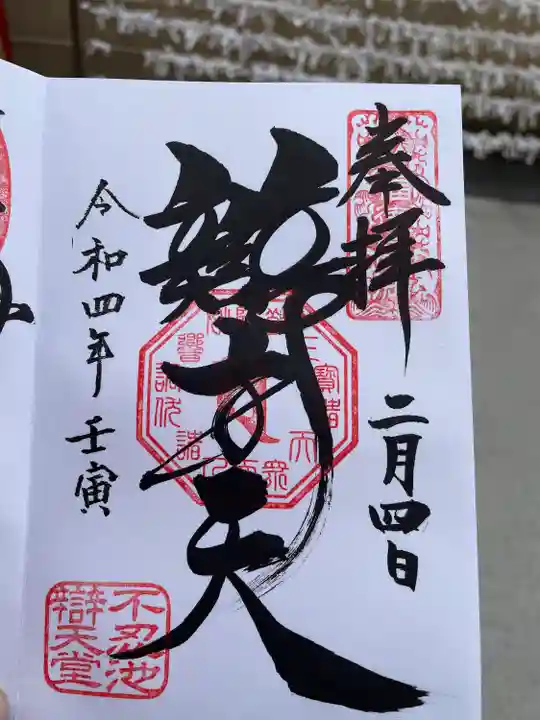 奉拝
二月四日
辯才天
令和四年 壬寅
不忍池
辯天堂